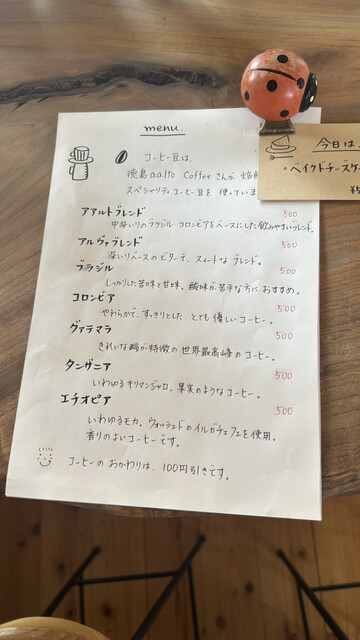 menu
コーヒー豆は、
徳島aalto Coffeeさんが 焙
スペシャリティコーヒー豆を 使っていま
アアルトブレンド 500
中深いりのブラジル・コロンビアをベースにした飲みやすいブレンド。
アルヴァブレンド 500
深いりベースのビターで、スイートなブレンド。
ブラジル 500
しっかりした苦味と甘味。酸味が苦手な方におすすめ。
コロンビア 500
やわらかで、すっきりとした、とても優しいコーヒー。
グァテマラ 500
きれいな酸が特徴の世界最高峰のコーヒー。
タンザニア 500
いわゆるキリマンジャロ。果実のようなコーヒー。
エチオピア 500
いわゆるモカ。ウォッシュドのイルガチェフェを使用。
香りのよいコーヒーです。
コーヒーの おかわりは、100円引きです。
今日は
ベイクドチーズケ
¥5